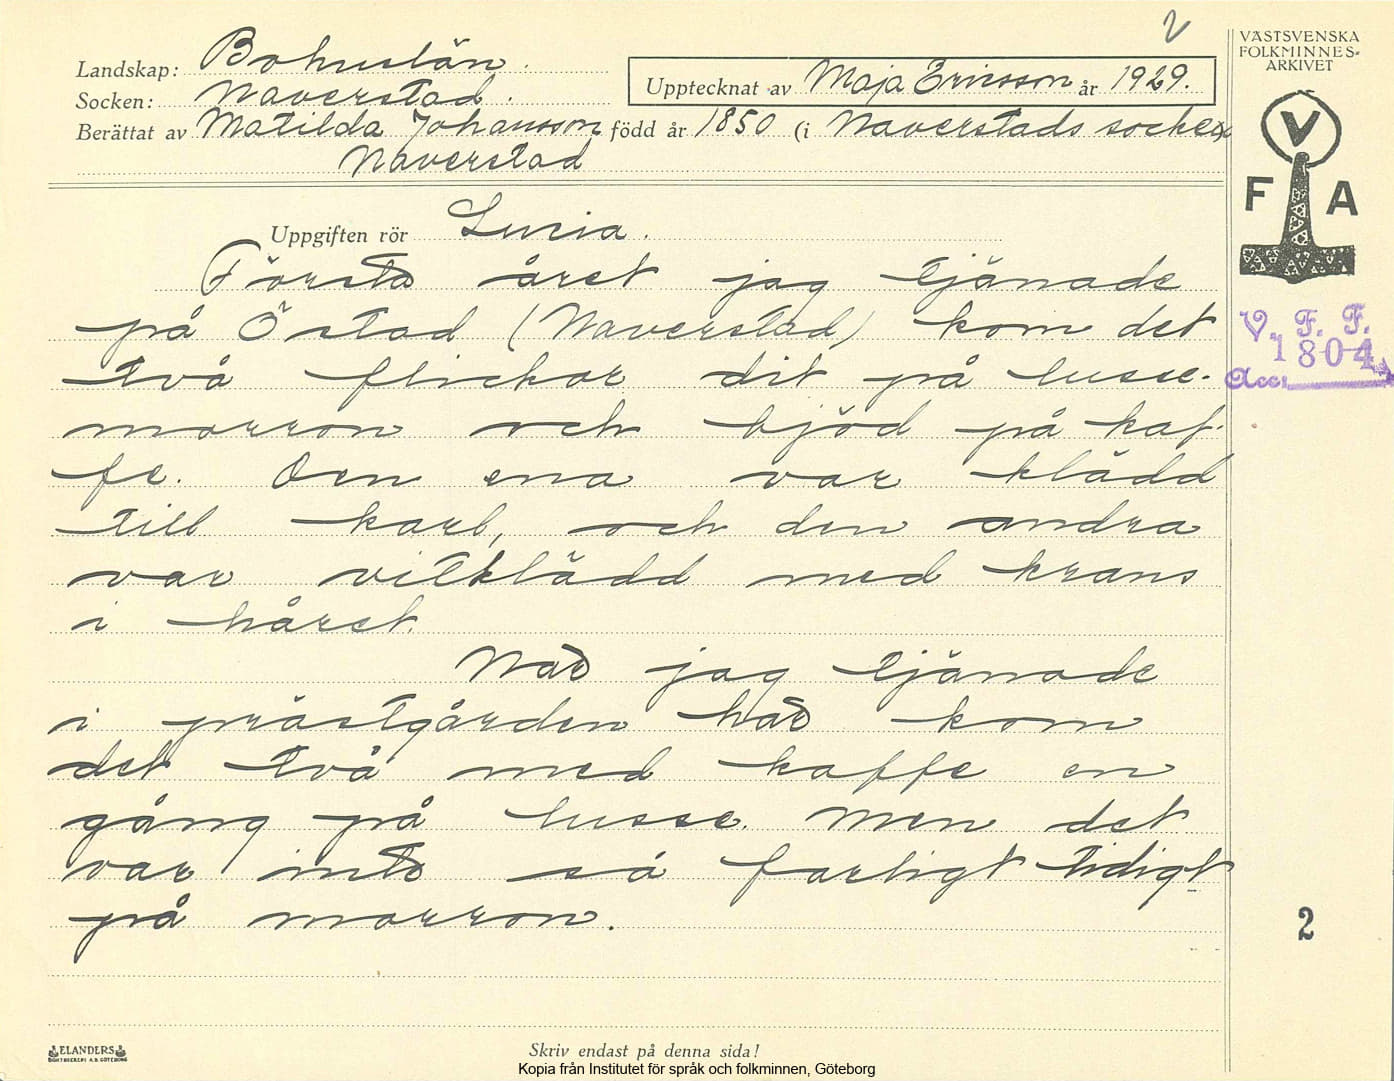 2
VÄSTSVENSKA
FOLKMINNES-
ARKIVET
Landskap: Bohuslän.
Socken: Naverstad.
Upptecknat av Maja Ericsson år 1929.
Berättat av Matilda Johansson född år 1850 (i Naverstads socken)
Naverstad
V
F A
Uppgiften rör Lucia.
Första året jag tjänade
på Östad (Naverstad) kom det
två flickor dit på lusse-
morron och bjöd på kaf-
fe. Den ena var klädd
till karl, och den andra
var vitklädd med krans
i håret.
När jag tjänade
i prästgården här kom
det två med kaffe en
gång på lusse. Men det
var inte så farligt tidigt
på morron.
V. F. F.
1804
Acc.
2
ELANDERS
BOKTRYCKERI A.B. GÖTEBORG
Skriv endast på denna sida!
Kopia från Institutet för språk och folkminnen, Göteborg